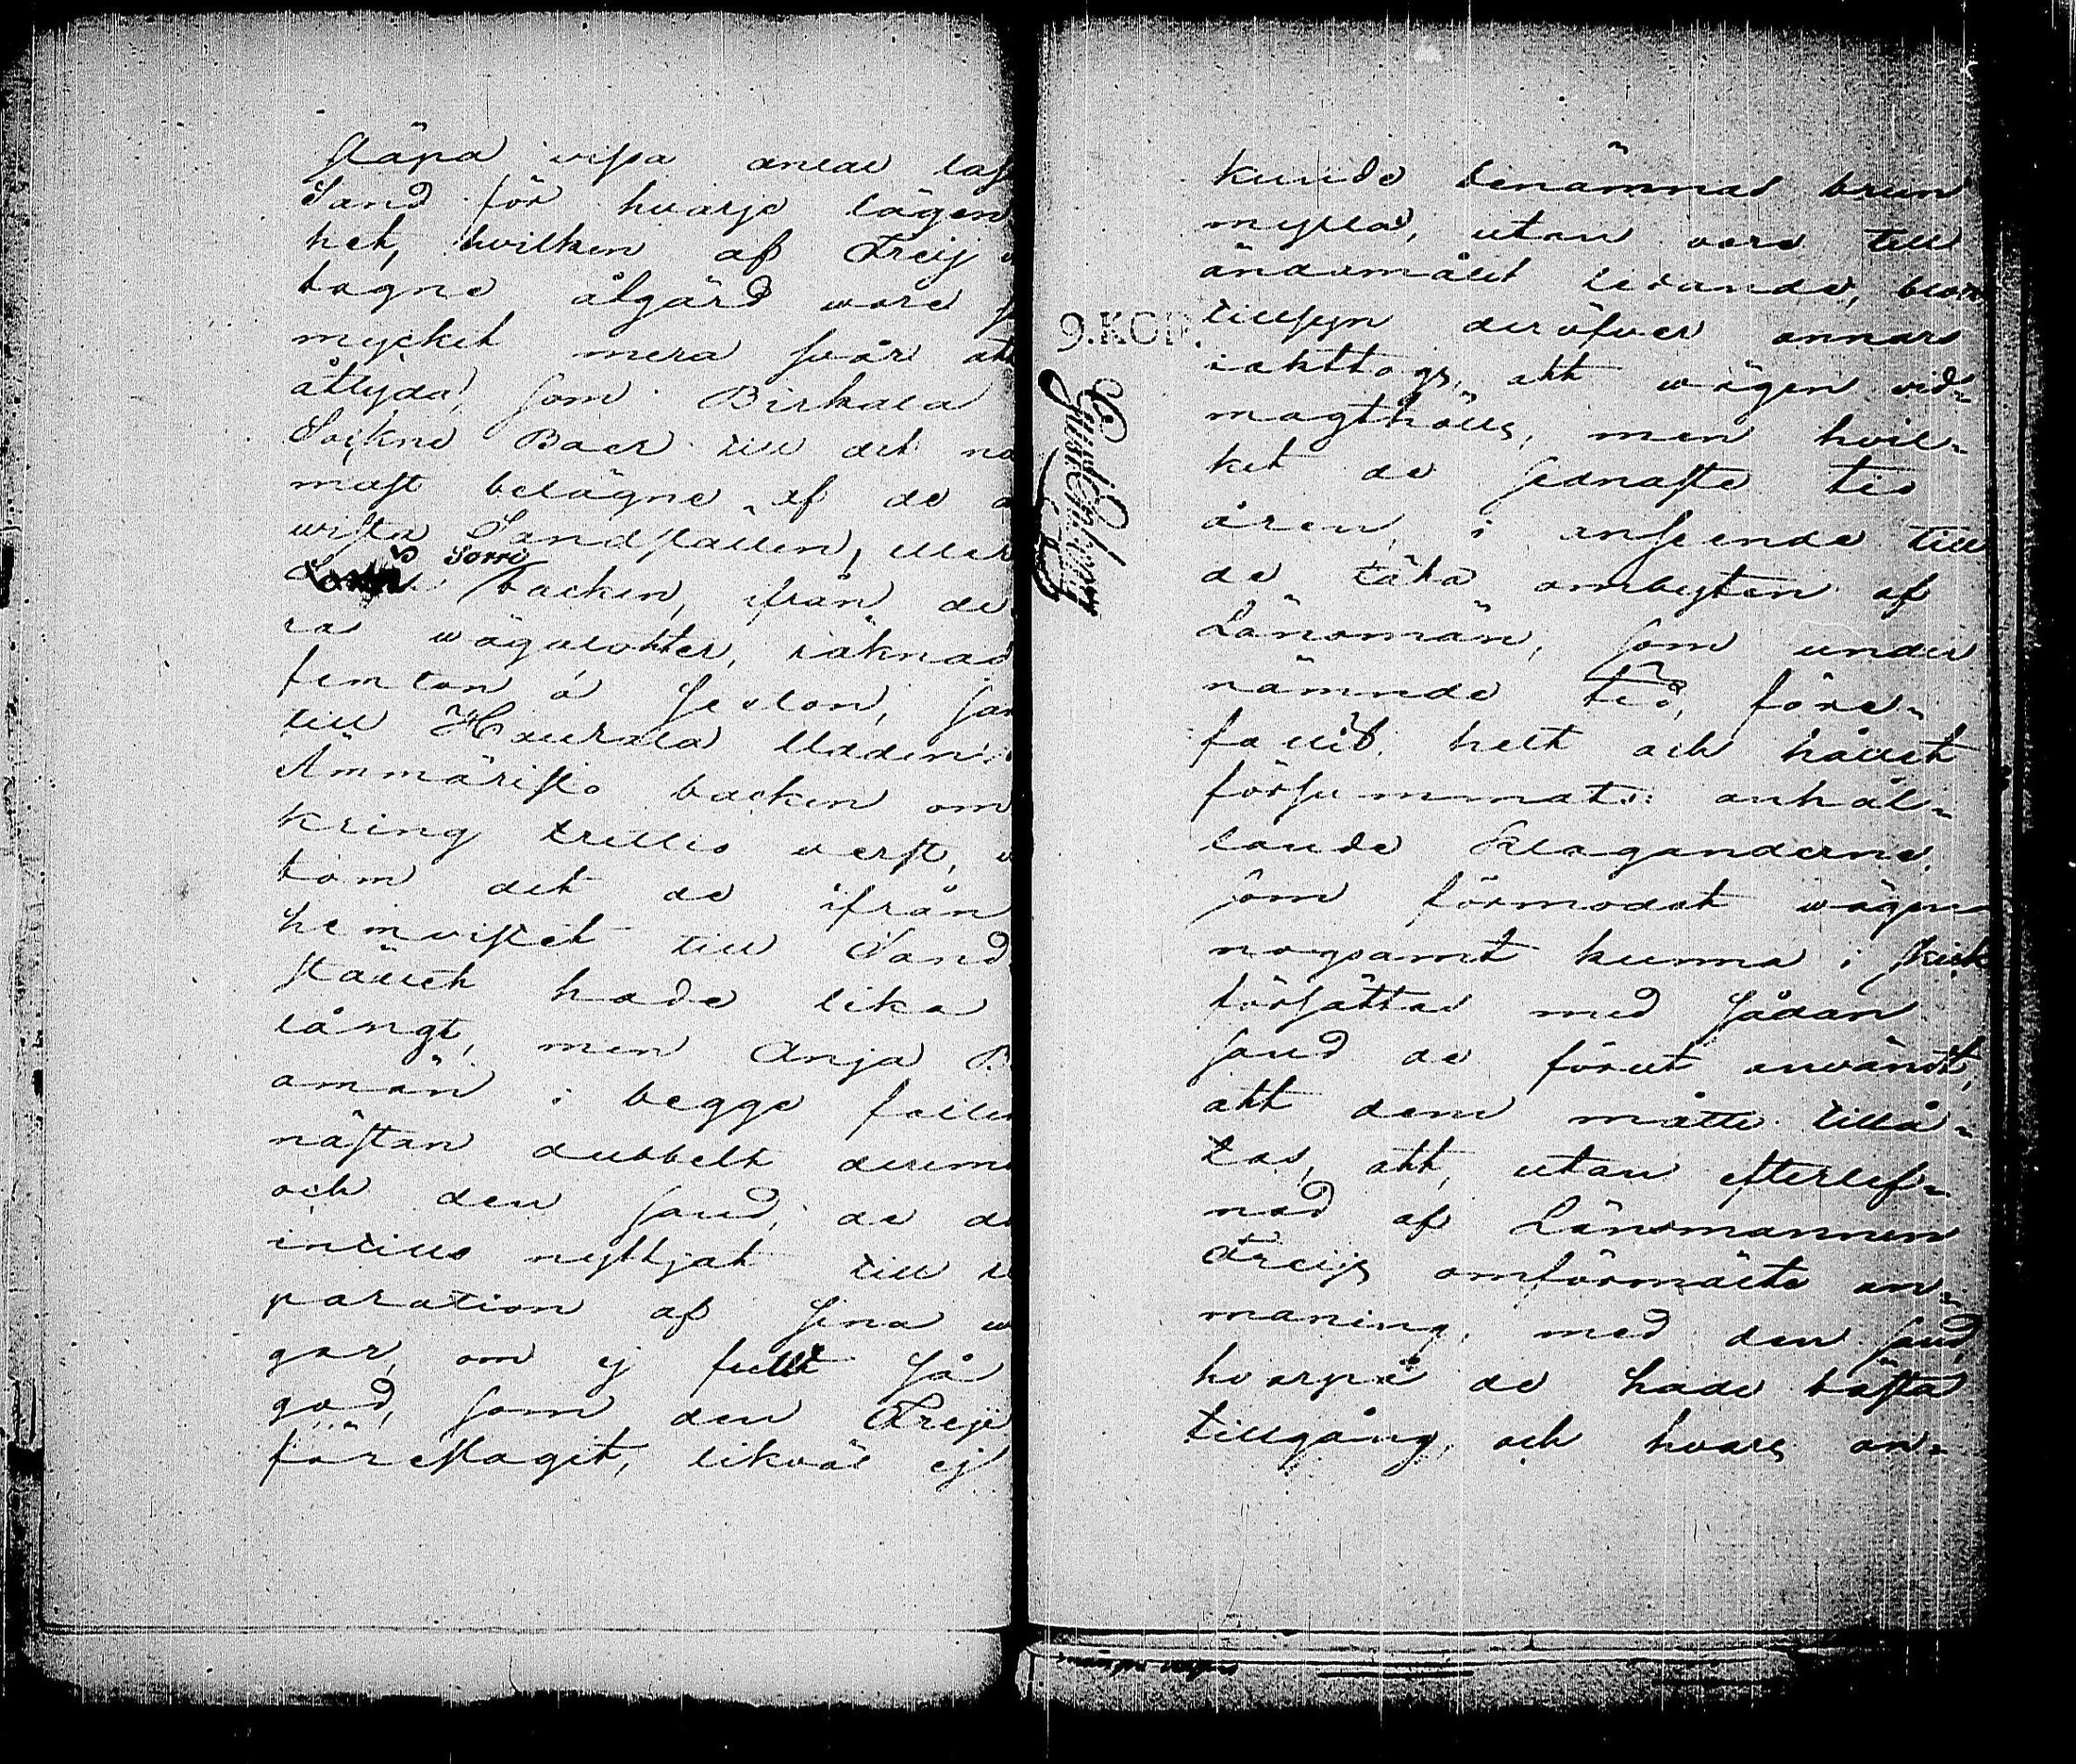 släpa vissa antal las
Sand för hvarje lägen
het, hvilken af Freij
tagne åtgärd wore
mycket mera svår att
åtlyda, som Birkala
Sockne Boer till det nä
mast belägne af de
wista Sandställen, eller
Sorri backen, ifrån de
ra wägalotter, räknad
femton á sexton, sam
till Haurala lladen
Ämmäristo backen om
kring trettio verst,
tom det de ifrån
hemvistet till Sand
stället hade lika
långt, men Anja B
omän i begge fallen
nästan dubbelt derem
och den sand, de
intills nyttjat till re
paration af sina w
gar, om ej fullt så
god, som den Freij
föreslagit, likväl ej
kunde benämnas brun
mylla, utan vore till
ändamålet tienande, blott
tillsyn deröfver annars
iakttogs, att wägen vid-
magthölls, men hvil-
ket de sednaste tio
åren, i anseende till
de täta ombyten af
Länsmän, som under
nämnde tid, före-
fallit, helt och hållet
försummats: anhål-
lande Klaganderne,
som förmodat wägen
nogsamt kunna i skick
försättas med sådan
sand de förut användt,
att dem måtte tillå-
tas, att, utan efterlef-
nad af Länsmannen
Freijs omförmälte an-
maning, med den sand,
hvarpå de hade bästa
tillgång, och hvars an-
9.KOP.